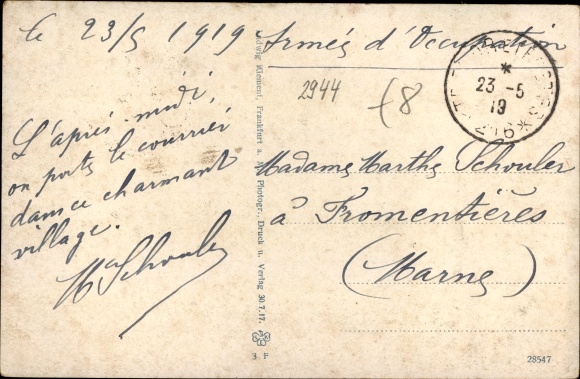 le 23/5 1919 Armées d'Occupation
L'après midi,
on porte le courrier
dans ce charmant
village.
Mce Schouler
2944
8
23 -5
19
Madame Marthe Schouler
à Fromentières
(Marne)
Ludwig Klement, Frankfurt a. M. Photogr., Druck u. Verlag 30.7.17.
3 F
28547